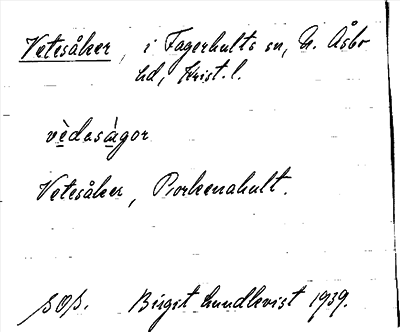 Vetesåker, i Fagerhults sn, N. Åsbo
hd, Krist. l.
vèdasàgor
Vetesåker, Porkenahult.
SOP. Birgit Lundkvist 1939.